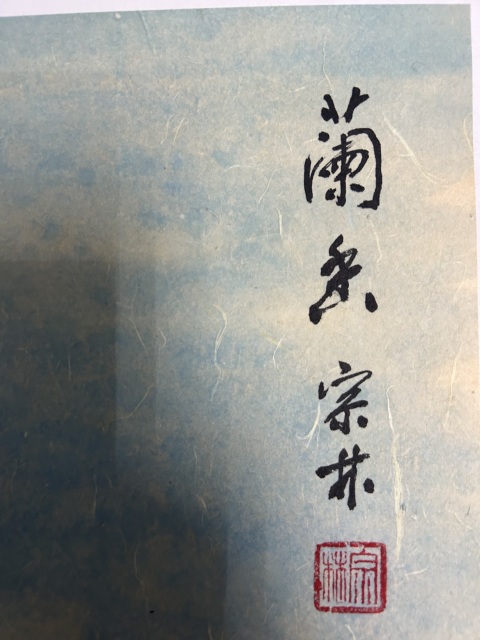 蘭香 宗林
宗林